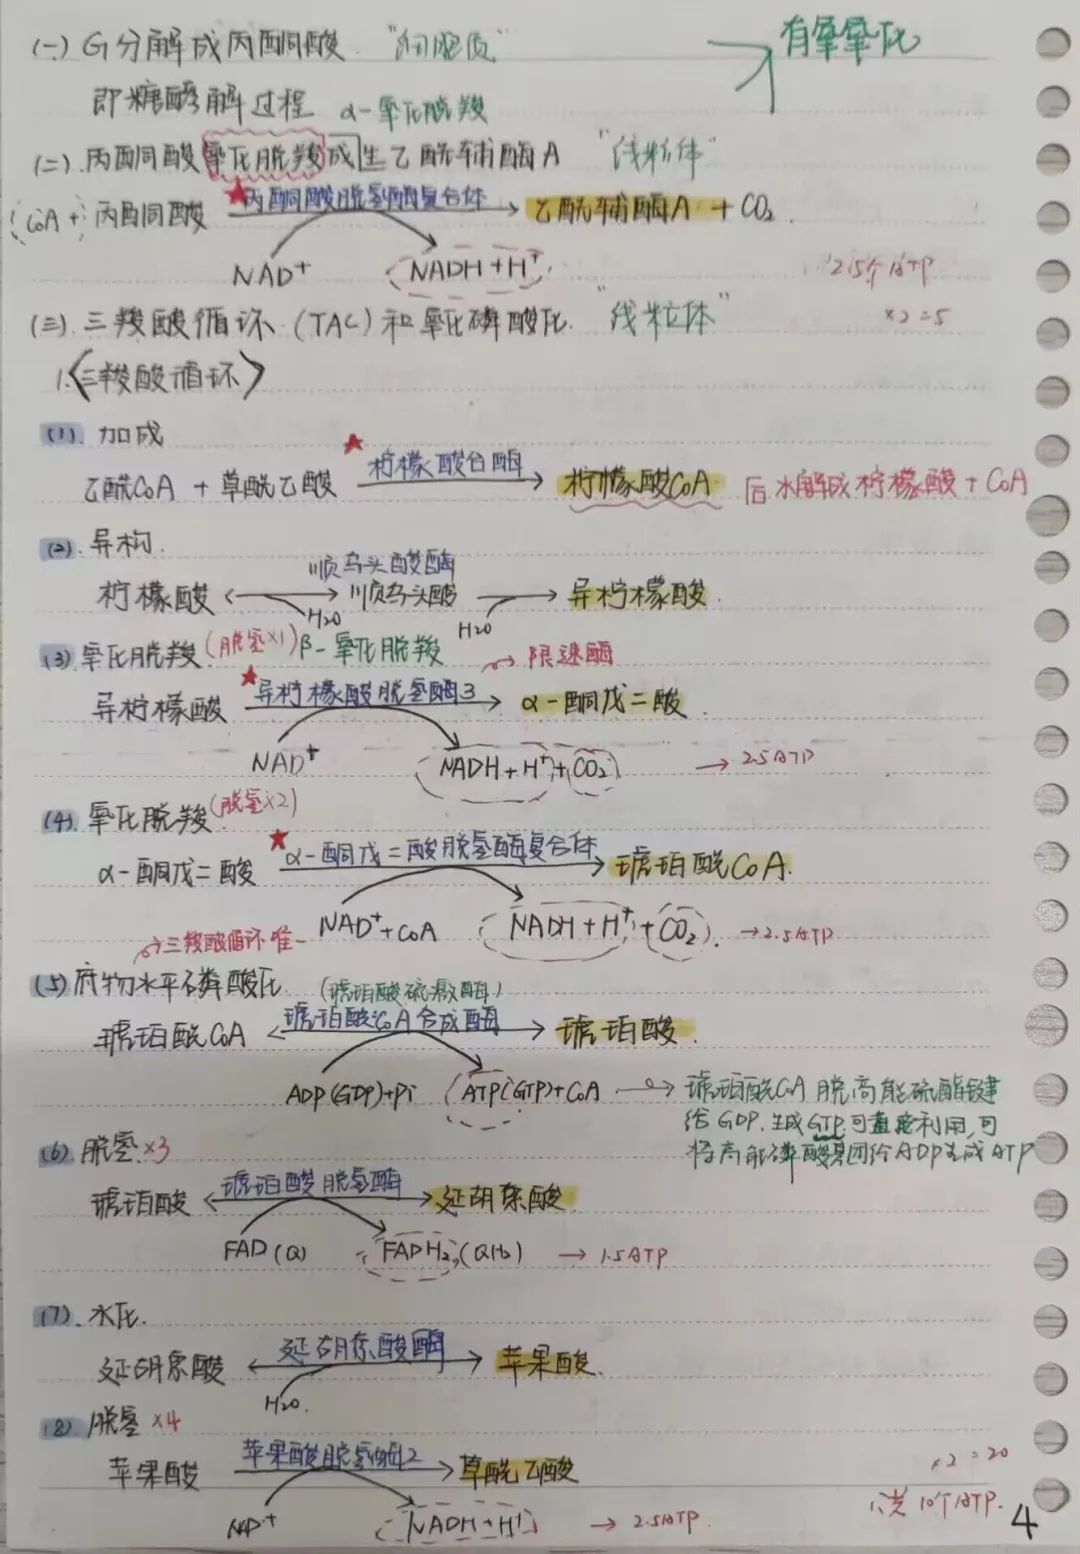 (一) G分解成丙酮酸. "细胞质" 有氧氧化
即糖酵解过程 α-氧化脱羧
(二). 丙酮酸氧化脱羧成生乙酰辅酶A "线粒体"
CoA + 丙酮酸 ★丙酮酸脱氢酶复合体 → 乙酰辅酶A + CO₂.
NAD⁺ NADH+H⁺ 2.5个ATP
×2=5
(三). 三羧酸循环 (TAC) 和氧化磷酸化. "线粒体"
1.〈三羧酸循环〉
(1). 加成
乙酰CoA + 草酰乙酸 ★柠檬酸合酶 → 柠檬酸CoA 后水解成柠檬酸+CoA
(2). 异构.
顺乌头酸酶
柠檬酸 ⟷ 顺乌头酸 → 异柠檬酸.
H₂O H₂O
(3) 氧化脱羧 (脱氢×1) β-氧化脱羧 → 限速酶
异柠檬酸 ★异柠檬酸脱氢酶3 → α-酮戊二酸.
NAD⁺ NADH+H⁺+CO₂ → 2.5ATP
(4). 氧化脱羧 (脱氢×2)
α-酮戊二酸 ★α-酮戊二酸脱氢酶复合体 → 琥珀酰CoA.
NAD⁺+CoA NADH+H⁺+CO₂. → 2.5ATP
→三羧酸循环唯一
(5) 底物水平磷酸化. (琥珀酸硫激酶)
琥珀酰CoA ⟷ 琥珀酸CoA合成酶 琥珀酸.
ADP(GDP)+Pi ATP(GTP)+CoA → 琥珀酰CoA脱高能硫酯键
给GDP.生成GTP.可直接利用,可
将高能磷酸基团给ADP生成ATP
(6) 脱氢×3
琥珀酸 ⟷ 琥珀酸脱氢酶 延胡索酸.
FAD(Q) FADH₂(QH₂) → 1.5ATP
(7). 水化.
延胡索酸 ⟷ 延胡索酸酶 苹果酸.
H₂O.
(8) 脱氢 ×4
苹果酸 苹果酸脱氢酶2 → 草酰乙酸
×2=20
NAD⁺ NADH+H⁺ → 2.5ATP. 共10个ATP.
4